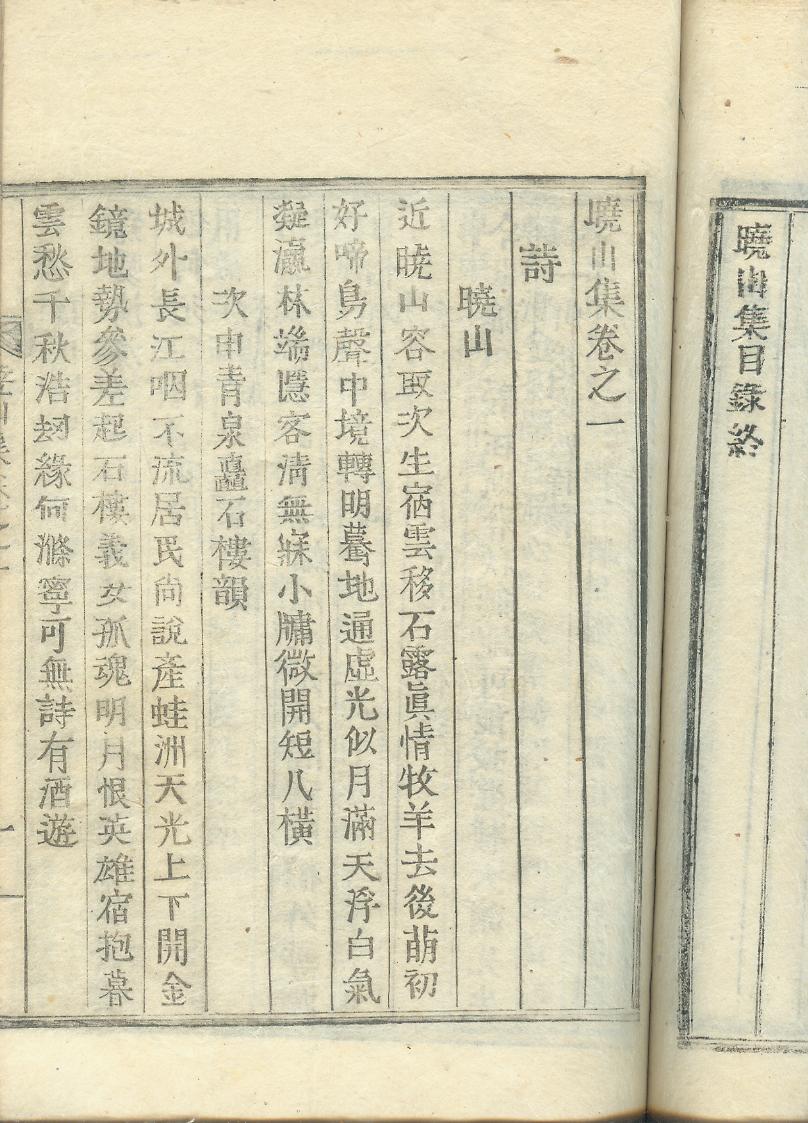 曉山集目錄終
曉山集卷之一
詩
曉山
近曉山容取次生宿雲移石露眞情牧羊去後萌初
好啼鳥聲中境轉明驀地通虛光似月滿天浮白氣
凝瀛林端隱客淸無寐小牖微開短八橫
次申青泉矗石樓韻
城外長江咽不流居民尙說產蛙洲天光上下開金
鏡地勢參差起石樓義女孤魂明月恨英雄宿抱暮
雲愁千秋浩刼緣何滌寧可無詩有酒遊